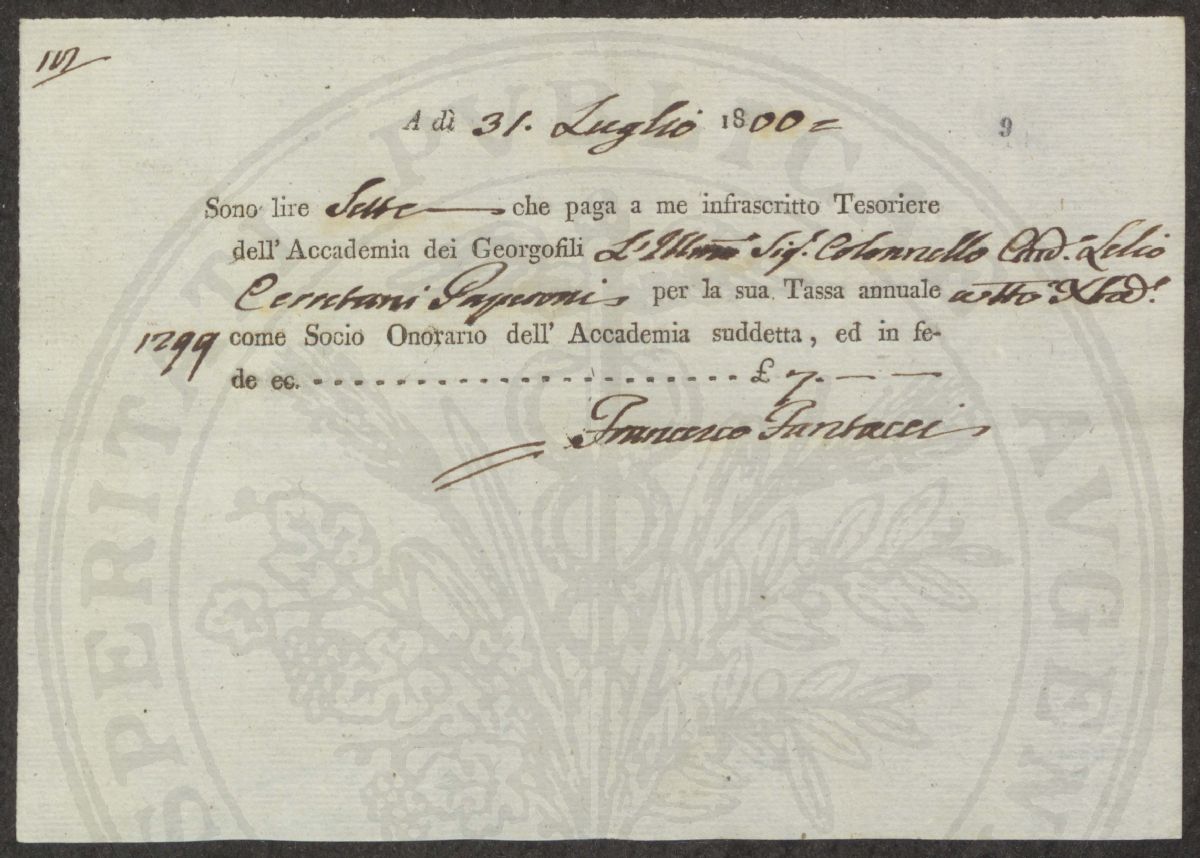 A dì 31. Luglio 1800 =
9
Sono lire Sette che paga a me infrascritto Tesoriere
dell' Accademia dei Georgofili L'Illmo Sigr. Colonnello Lelio
Cerretani per la sua Tassa annuale a tutto Xbre
1799 come Socio Onorario dell' Accademia suddetta, ed in fe-
de ec. £ 7. — —
Francesco Fantacci
PROSPERITATI PVBLICAE AVGEN